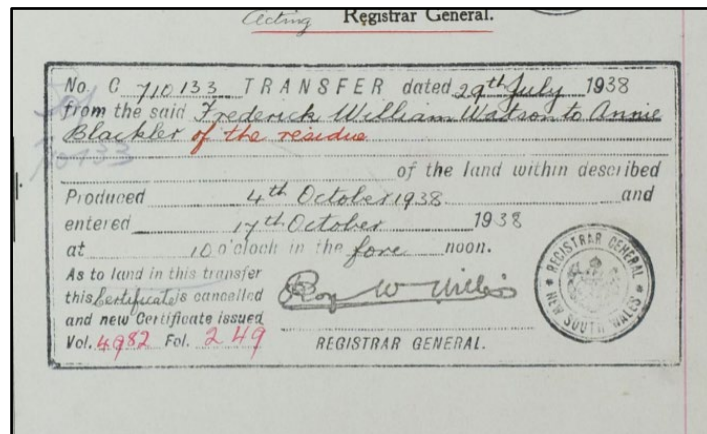 Acting Registrar General.
No. C 710133 TRANSFER dated 29th July 1938
from the said Frederick William Watson to Annie
Blackler of the residue
710133
of the land within described
Produced 4th October 1938 and
entered 17th October 1938
at 10 o'clock in the fore noon.
As to land in this transfer
this Certificate is cancelled
and new Certificate issued
Vol. 4982 Fol. 249
Roy W Willis
REGISTRAR GENERAL.
REGISTRAR GENERAL
NEW SOUTH WALES